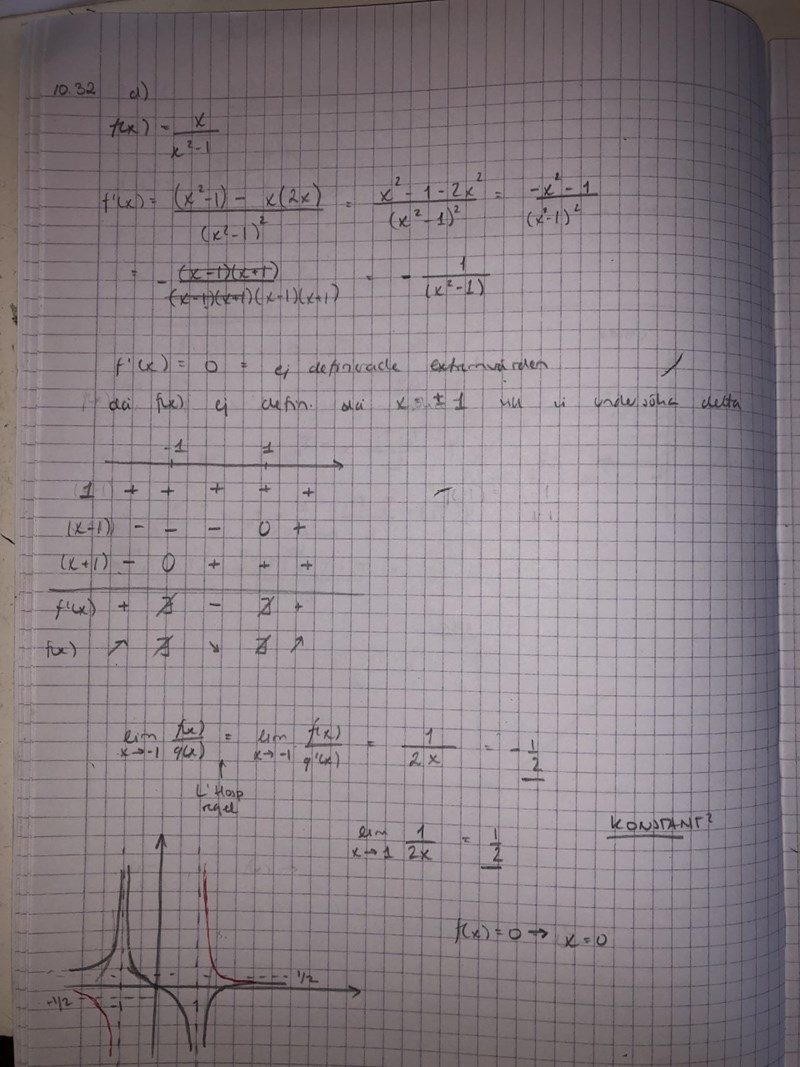 10.32 d)
f(x) = x/(x²-1)
f'(x) = ((x²-1) - x(2x))/(x²-1)² = (x²-1-2x²)/(x²-1)² = (-x²-1)/(x²-1)²
= - (x-1)(x+1)/((x-1)(x+1)(x-1)(x+1)) = - 1/(x²-1)
f'(x) = 0 = ej definierade extremvärden
då f(x) ej defin. då x = ± 1 vill vi undersöka detta
-1 1
1 + + + + +
(x-1) - - - 0 +
(x+1) - 0 + + +
f'(x) + ∄ - ∄ +
f(x) ↗ ∄ ↘ ∄ ↗
lim x→-1 f(x)/g(x) = lim x→-1 f'(x)/g'(x) = 1/2x = -1/2
L'Hosp
regel
lim x→1 1/2x = 1/2
KONSTANT?
f(x) = 0 → x = 0
1/2
-1/2